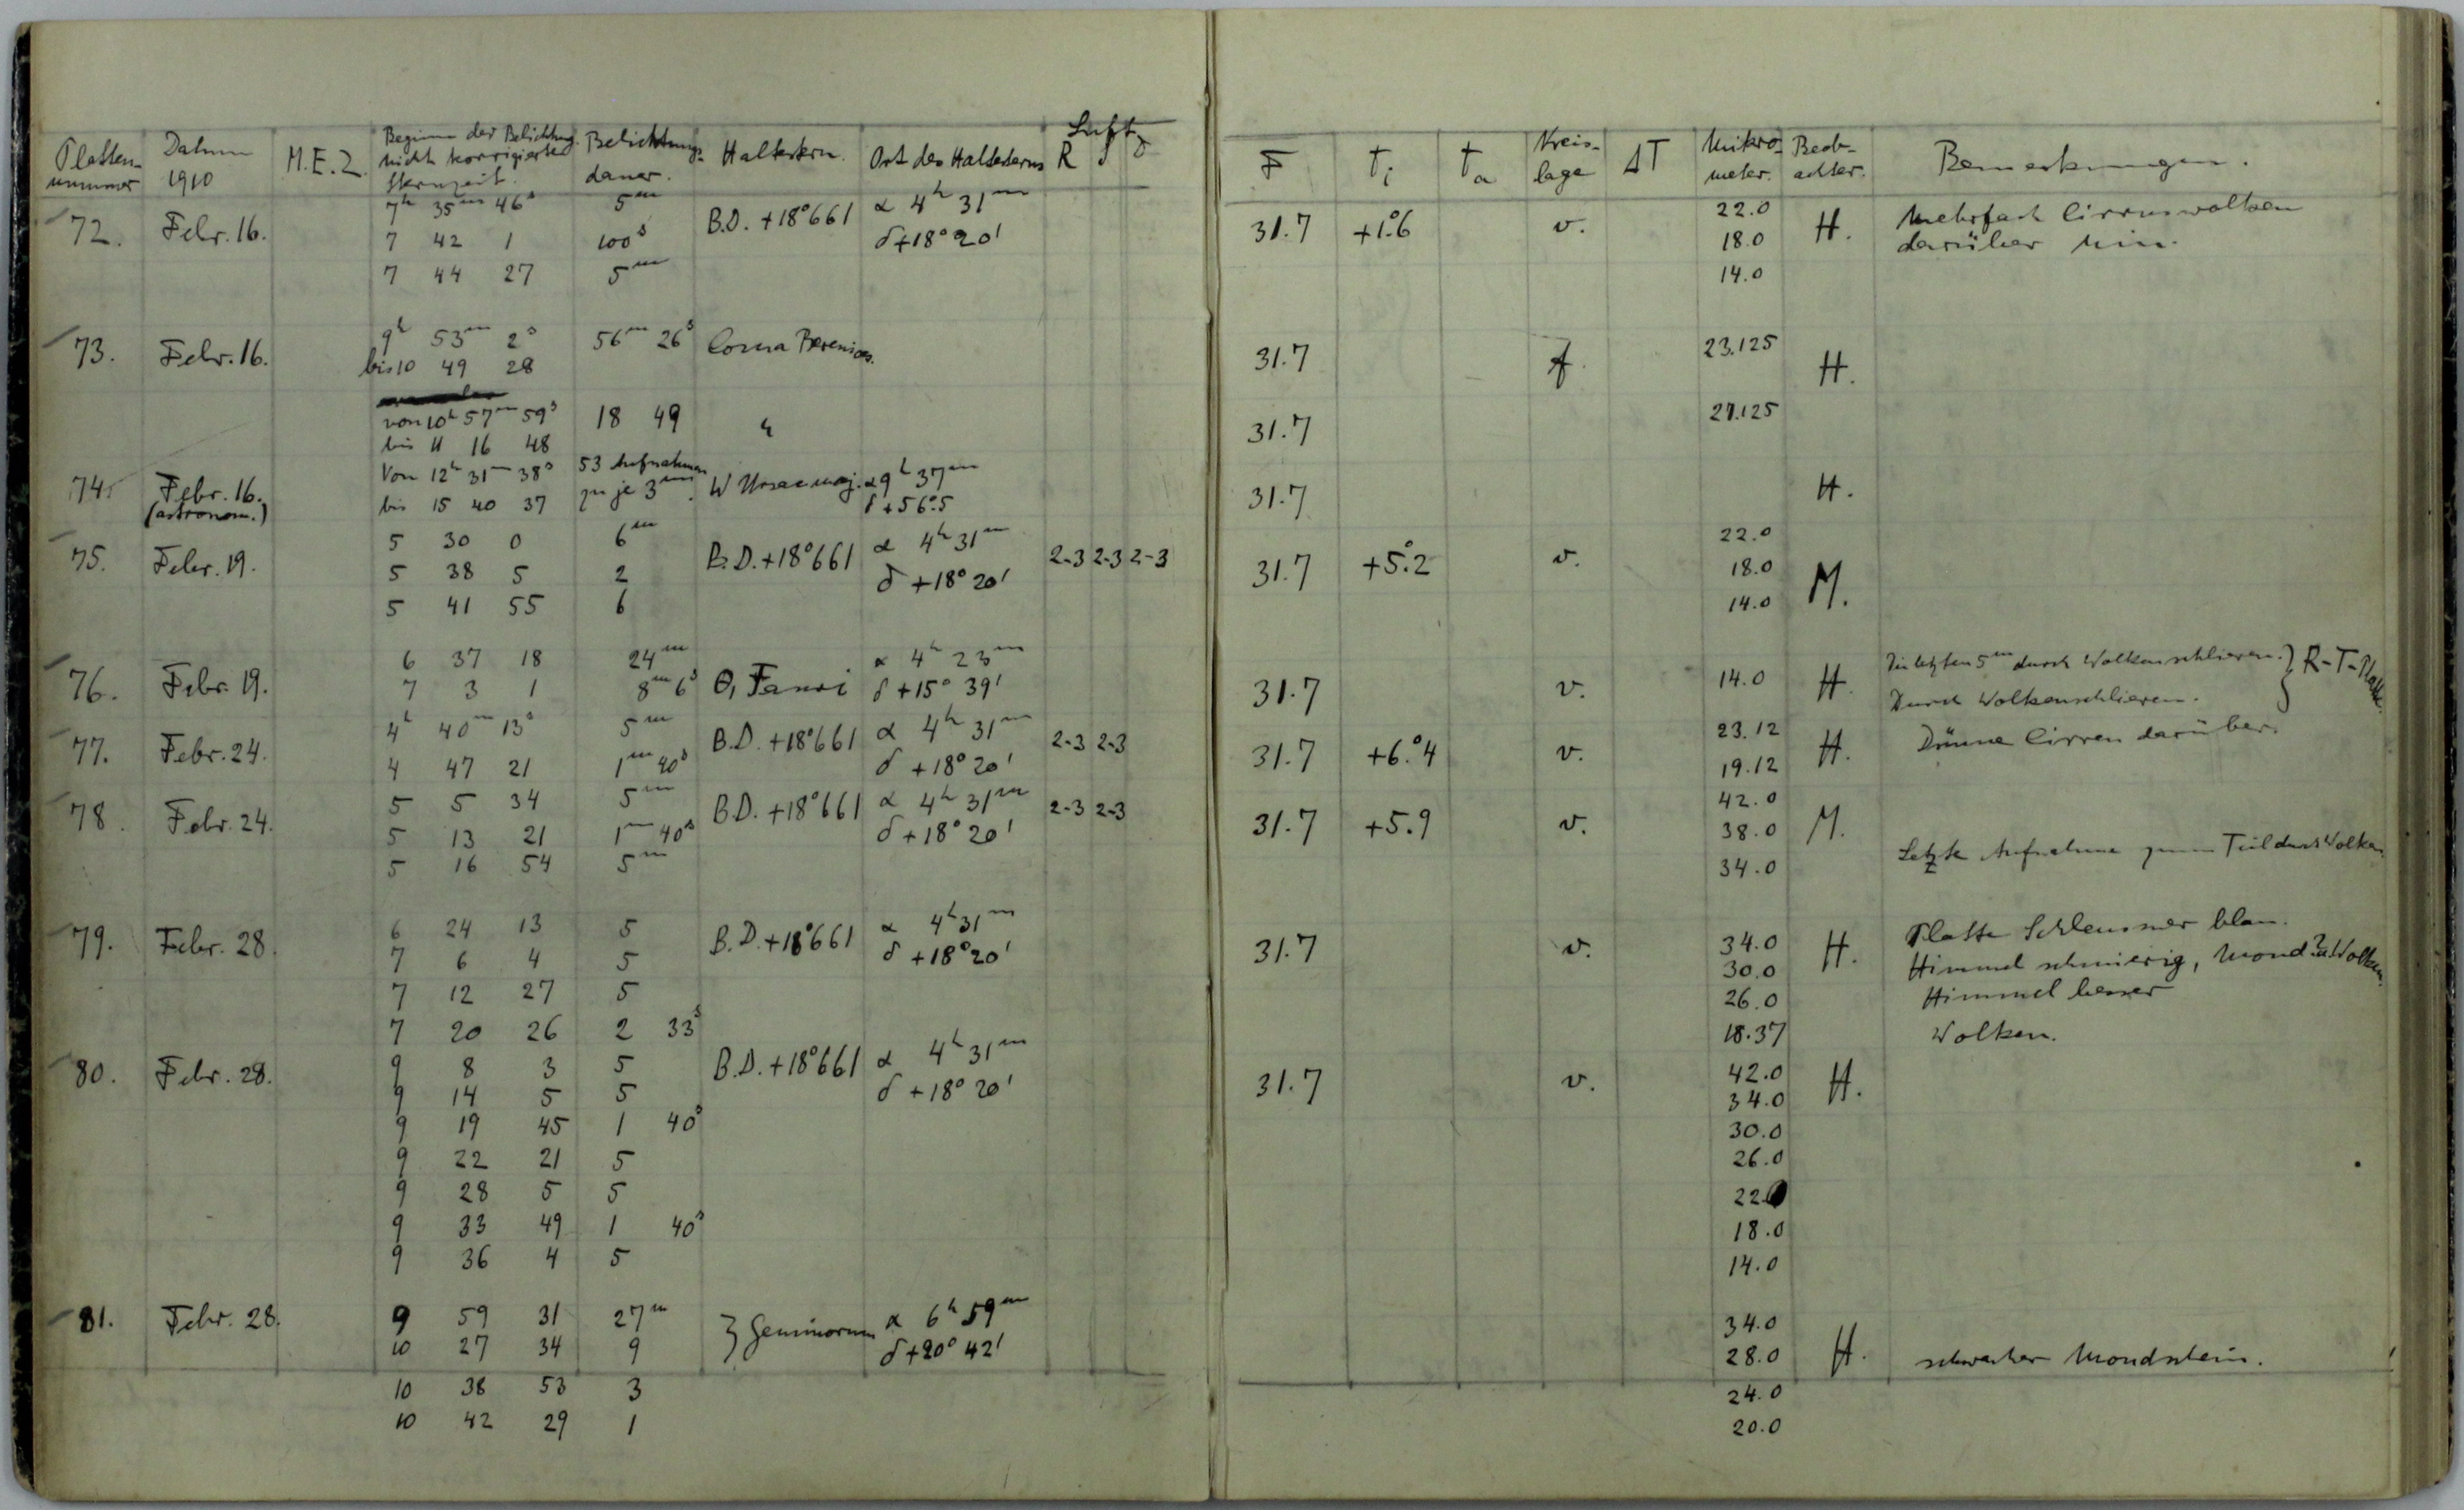 Platten- Datum M.E.Z. Beginn der Belichtung. Belichtungs- Haltestern. Ort des Haltesterns Luft
nummer 1910 nicht korrigierte dauer. R J Z
Sternzeit.
72. Febr. 16. 7h 35m 46s 5m B.D. +18°661 α 4h 31m
7 42 1 100s δ +18° 20'
7 44 27 5m
73. Febr. 16. 9h 53m 2s 56m 26s Coma Berenices.
bis 10 49 28
von 10h 57m 59s 18 49 "
bis 11 16 48
74. Febr. 16. Von 12h 31m 38s 53 Aufnahmen W Ursae maj. α 9h 37m
(astronom.) bis 15 40 37 zu je 3m. δ +56°.5
75. Febr. 19. 5 30 0 6m B.D. +18°661 α 4h 31m 2-3 2-3 2-3
5 38 5 2 δ +18° 20'
5 41 55 6
76. Febr. 19. 6 37 18 24m θ1 Tauri α 4h 23m
7 3 1 8m 6s δ +15° 39'
77. Febr. 24. 4h 40m 13s 5m B.D. +18°661 α 4h 31m 2-3 2-3
4 47 21 1m 40s δ +18° 20'
78. Febr. 24. 5 5 34 5m B.D. +18°661 α 4h 31m 2-3 2-3
5 13 21 1m 40s δ +18° 20'
5 16 54 5m
79. Febr. 28. 6 24 13 5 B.D. +18°661 α 4h 31m
7 6 4 5 δ +18° 20'
7 12 27 5
7 20 26 2 33s
80. Febr. 28. 9 8 3 5 B.D. +18°661 α 4h 31m
9 14 5 5 δ +18° 20'
9 19 45 1 40s
9 22 21 5
9 28 5 5
9 33 49 1 40s
9 36 4 5
81. Febr. 28. 9 59 31 27m ζ Geminorum α 6h 59m
10 27 34 9 δ +20° 42'
10 38 53 3
10 42 29 1
F ti ta Kreis- ΔT Mikro- Beob- Bemerkungen.
lage meter. achter.
31.7 +1°.6 v. 22.0 H. Mehrfach Cirruswolken
18.0 darüber hin.
14.0
31.7 f. 23.125 H.
31.7 27.125
31.7 H.
31.7 +5°.2 v. 22.0 M.
18.0
14.0
31.7 v. 14.0 H. Die letzten 5m durch Wolkenschlieren. } R-T-Platte.
Durch Wolkenschlieren.
31.7 +6°.4 v. 23.12 H. Dünne Cirren darüber.
19.12
31.7 +5.9 v. 42.0 M.
38.0
34.0 Letzte Aufnahme zum Teil durch Wolken.
31.7 v. 34.0 H. Platte Schleussner blau.
30.0 Himmel schmierig, Mond? u. Wolken.
26.0 Himmel besser
18.37 Wolken.
31.7 v. 42.0 H.
34.0
30.0
26.0
22.0
18.0
14.0
34.0
28.0 H. schwacher Mondschein.
24.0
20.0